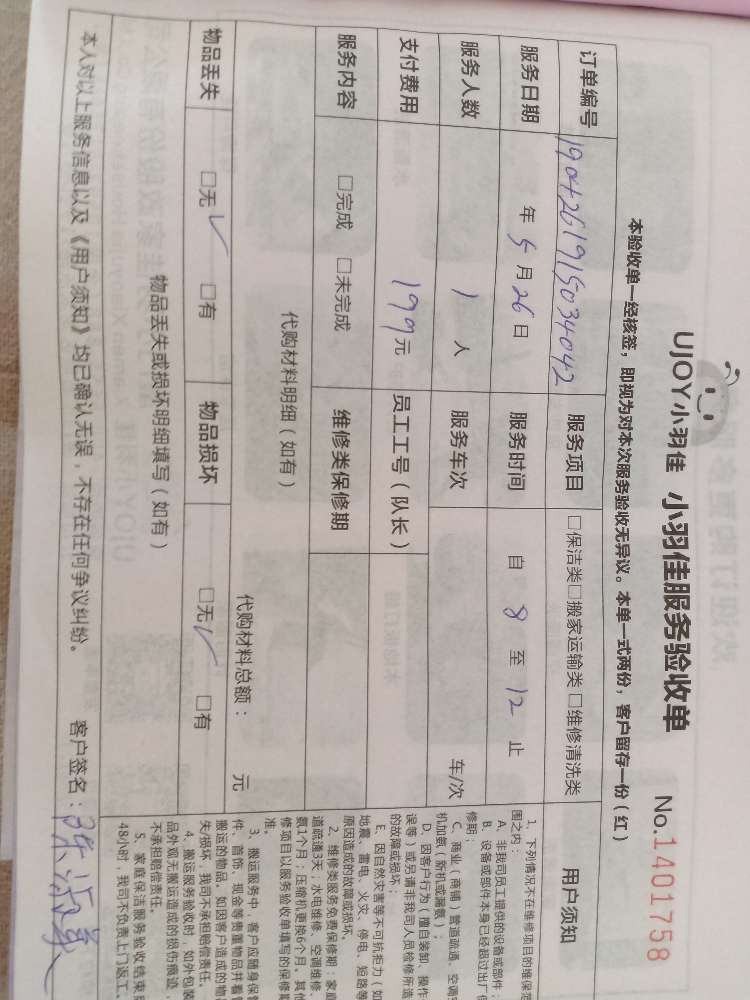 UJOY小羽佳 小羽佳服务验收单 No.1401758
本验收单一经核签，即视为对本次服务验收无异议。本单一式两份，客户留存一份（红）
订单编号 190426191503404​2 服务项目 □保洁类□搬家运输类 □维修清洗类
服务日期 年 5 月 26 日 服务时间 自 8 至 12 止
服务人数 1 人 服务车次 车/次
支付费用 199 元 员工工号（队长）
服务内容 □完成 □未完成 维修类保修期
代购材料明细（如有）
代购材料总额： 元
物品丢失 □无 ✓ □有 物品损坏 □无 ✓ □有
物品丢失或损坏明细填写（如有）
本人对以上服务信息以及《用户须知》均已确认无误，不存在任何争议纠纷。 客户签名：张淑
用户须知
1、下列情况不在维修项目的维保范
围之内：
A、非我司员工提供的设备或部件；
B、设备或部件本身已经超过出厂
修期；
C、商业（商铺）管道疏通、空调
机加氨（新机或漏氨）；
D、因客户行为（擅自装卸、操作
误等）或另请非我司人员检修所造
的故障或损坏；
E、因自然灾害等不可抗拒力（如
地震、雷电、火灾、停电、短路等
原因造成的故障或损坏。
2、维修类服务免费保修期：家庭
道疏通3天；水电维修、空调维修、
氨1个月；压缩机更换6个月。其他
修项目以服务验收单填写的保修期
准。
3、搬运服务中，客户应随身保管
件、首饰、现金等贵重物品并看管
搬运的物品。如因客户造成的物品
失/损坏，我司不承担赔偿责任。
4、搬运服务验收时，如外包装
品外观无搬运造成的损伤痕迹，
不承担赔偿责任。
5、家庭保洁服务验收结束后
48小时，我司不负责上门返工。